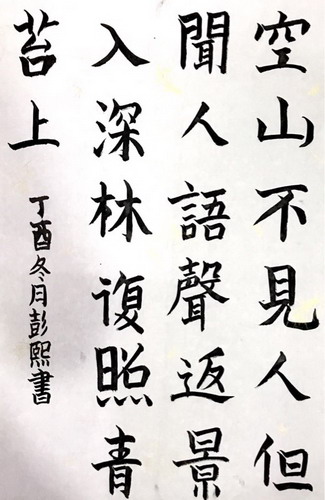 空山不見人但
聞人語聲返景
入深林復照青
苔上
丁酉冬月彭熙書